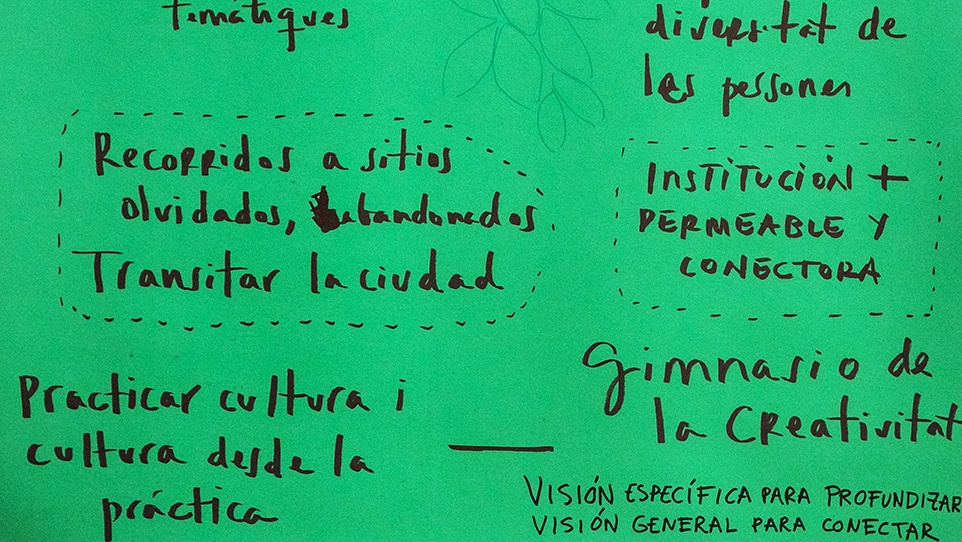 temàtiques
diversitat de
les persones
Recorridos a sitios
olvidados, abandonados
Transitar la ciudad
INSTITUCIÓN +
PERMEABLE Y
CONECTORA
Practicar cultura i
cultura desde la
práctica
Gimnasio de
la Creativitat
VISIÓN ESPECÍFICA PARA PROFUNDIZAR
VISIÓN GENERAL PARA CONECTAR